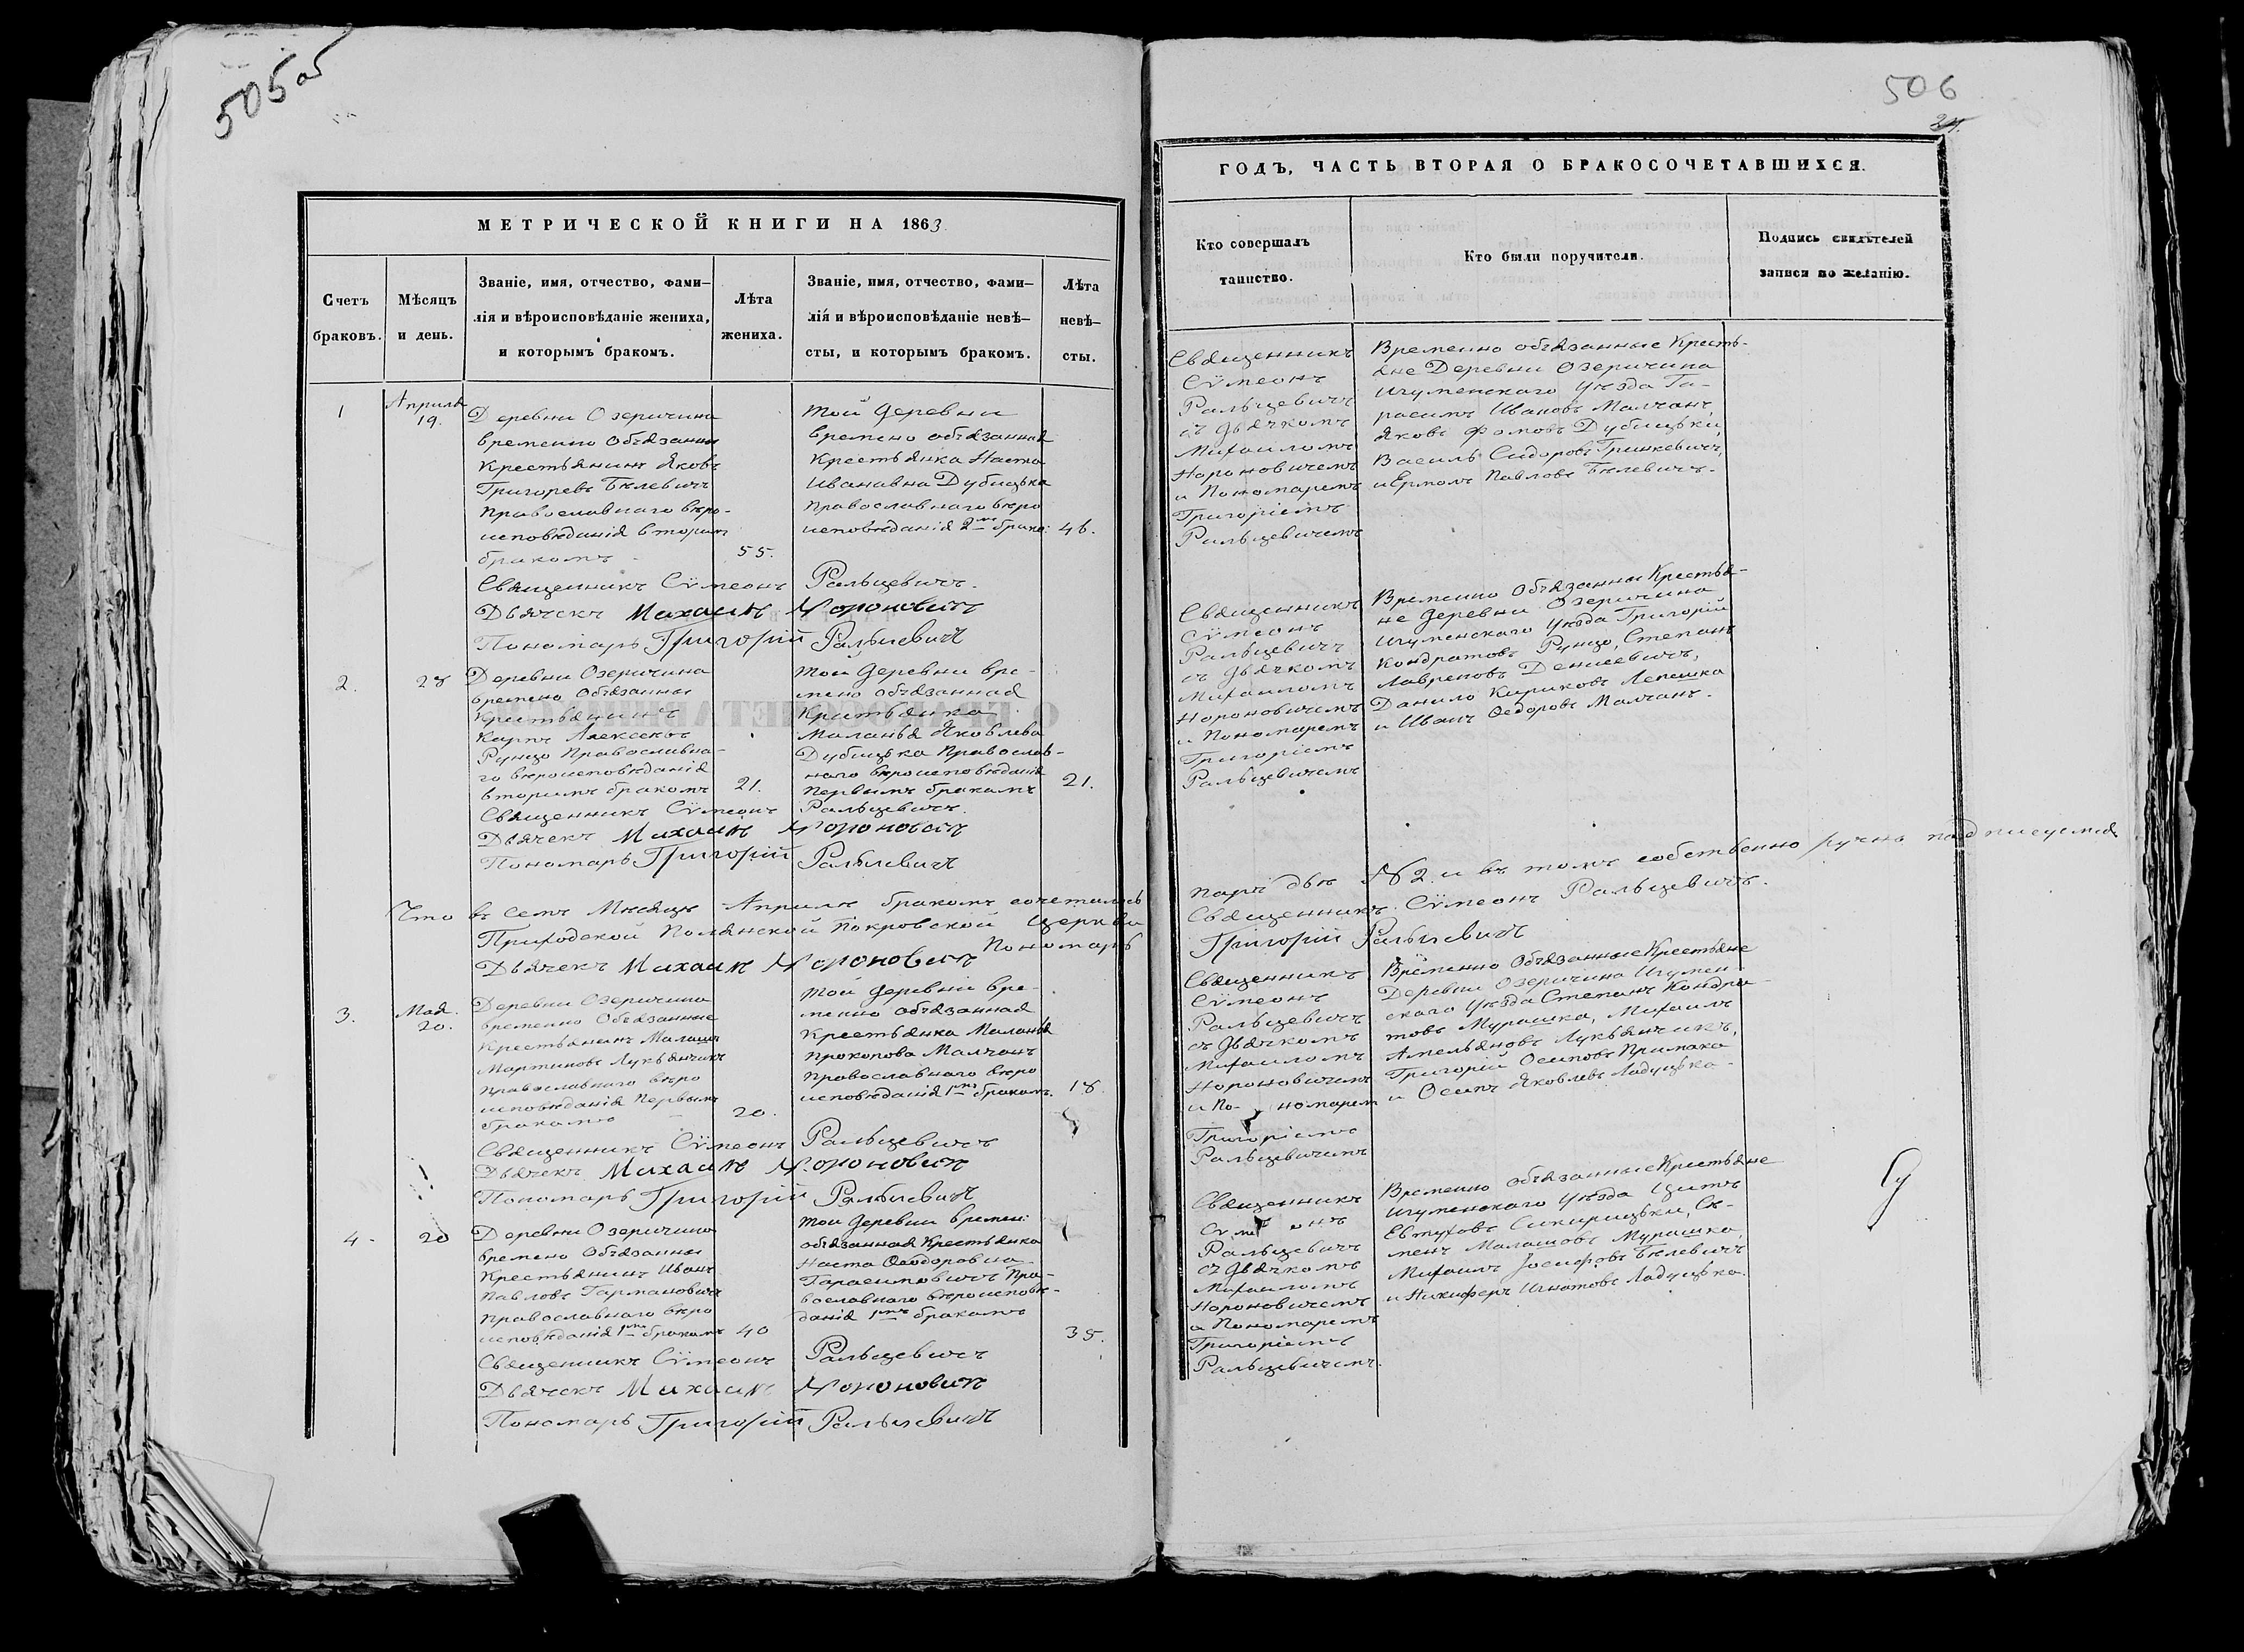 505 об
МЕТРИЧЕСКОЙ КНИГИ НА 1863
Счетъ браковъ.
Мѣсяцъ и день.
Званіе, имя, отчество, фами-
лія и вѣроисповѣданіе жениха,
и которымъ бракомъ.
Лѣта жениха.
Званіе, имя, отчество, фами-
лія и вѣроисповѣданіе невѣ-
сты, и которымъ бракомъ.
Лѣта невѣ-
сты.
1
Апрѣля
19.
Деревни Озеричина
временно обязанны
Крестьянинъ Яковъ
Григоревъ Бѣлевичъ
православнаго вѣро-
исповѣданія вторым
бракомъ
55.
той деревни
времено обязанная
Крестьянка Наста
Иванавна Дубицька
православнаго вѣро
исповѣданія 2мъ брако:
46.
Священникъ Сѵмеонъ Ральцевичъ.
Дьячекъ Михаилъ Нороновичъ
Пономарь Григорій Ральцевичъ
2.
28
Деревни Озеричина
времено Обязанны
Крестьянинъ
Карпъ Алексѣевъ
Рунцо Православна-
го вѣроисповѣданія
вторимъ бракомъ
21.
той деревни вре-
мено обязанная
Критьянка
Маланья Яковлева
Дубицька православ-
наго вѣроисповѣданія
первымъ бракамъ
21.
Священникъ Сѵмеонъ Ральцевичъ
Дьячекъ Михаилъ Нороновичъ
Пономарь Григорій Ральцевичъ
Что въ семъ Мѣсяцѣ Априлѣ бракомъ сочеталось
Приходской Полянской Покровской Церкви
Дьячекъ Михаилъ Нороновичъ Пономарь
3.
Мая
20.
Деревни Озеричина
временно Обязанные
Крестьянинъ Малашъ
Мартиновъ Лукьянчикъ
православнаго вѣро
исповѣданія Первымъ
бракамъ
20.
той деревни вре-
менно обязанная
Крестьянка Маланья
Прокопова Малчанъ
православнаго вѣро
исповѣданія 1мъ бракомъ.
18.
Священникъ Сѵмеонъ Ральцевичъ
Дьячекъ Михаилъ Нороновичъ
Пономарь Григорій Ральцевичъ
4.
20
Деревни Озеричина
времено Обязанны
Крестьянинъ Иванъ
Павловъ Гармановичъ
православнаго вѣро
исповѣданія 1мъ бракомъ
40
той деревни времен:
обязанная Крестьянка
Наста Ѳеодоровна
Тарасимовичъ Пра-
вославнаго вѣроисповѣ-
данія 1мъ бракомъ
35.
Священникъ Сѵмеонъ Ральцевичъ
Дьячекъ Михаилъ Нороновичъ
Пономарь Григорій Ральцевичъ
506
ГОДЪ, ЧАСТЬ ВТОРАЯ О БРАКОСОЧЕТАВШИХСЯ.
Кто совершалъ
таинство.
Кто были поручители.
Подпись свидѣтелей
записи по желанію.
Священникъ
Сѵмеонъ
Ральцевичъ
съ дьячкомъ
Михаиломъ
Нороновичемъ
и Пономаремъ
Григоріемъ
Ральцевичемъ
Временно обязанные Кресть-
яне Деревни Озеричина
Игуменскаго уѣзда Га-
расимъ Ивановъ Малчанъ,
Яковъ Фомовъ Дубицьки,
Василь Сидоровъ Гришкевичъ,
и Ермолъ Павловъ Бѣлевичъ.
Священникъ
Сѵмеонъ
Ральцевичъ
съ дьячкомъ
Михаиломъ
Нороновичемъ
и Пономаремъ
Григоріемъ
Ральцевичемъ
Временно Обязанны Крестья-
не деревни Озеричина
Игуменскаго уѣзда Григорій
Кондратовъ Рунцо, Степанъ
Лавреновъ Денисевичъ,
Данило Кириковъ Лепешка
и Иванъ Ѳедоровъ Малчанъ.
паръ двѣ № 2. и въ томъ собственно ручно подписуемся
Священникъ Сѵмеонъ Ральцевичъ.
Григорій Ральцевичъ
Священникъ
Сѵмеонъ
Ральцевичъ
съ дьячкомъ
Михаиломъ
Нороновичемъ
и По-номарем
Григоріемъ
Ральцевичемъ
Временно Обязанные Крестьяне
Деревни Озеричина Игумен-
скаго уѣзда Степанъ Кондра-
товъ Мурашка, Михаилъ
Амельяновъ Лукьянчикъ,
Григорій Осиповъ Примака
и Осипъ Яковлевъ Ладуцька.
Священникъ
Сѵмеонъ
Ральцевичъ
съ дьячкомъ
Михаиломъ
Нороновичемъ
и Пономаремъ
Григоріемъ
Ральцевичемъ.
Временно обязанные Крестьяне
Игуменскаго уѣзда Цитъ
Евтуховъ Сикирицьки, Се-
менъ Малашовъ Мурашко,
Михаилъ Іосифовъ Бѣлевичъ
и Никиферъ Игнатовъ Ладуцька.